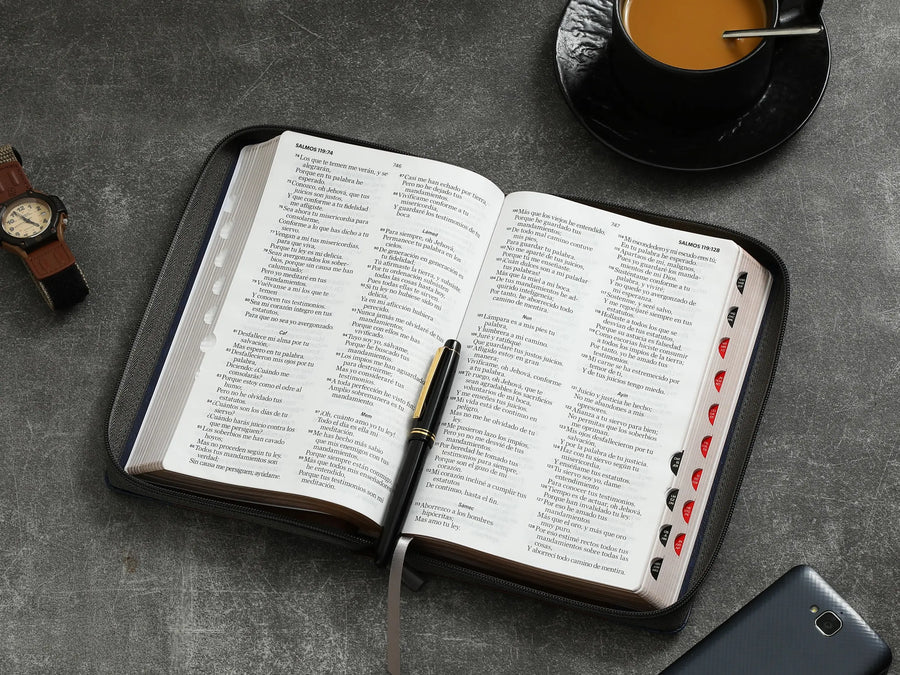 SALMOS 119:74
746
74 Los que te temen me verán, y se
alegrarán,
Porque en tu palabra he
esperado.
75 Conozco, oh Jehová, que tus
juicios son justos,
Y que conforme a tu fidelidad
me afligiste
76 Sea ahora tu misericordia para
consolarme,
Conforme a lo que has dicho a tu
siervo.
77 Vengan a mí tus misericordias,
para que viva,
Porque tu ley es mi delicia.
78 Sean avergonzados los soberbios,
porque sin causa me han
calumniado;
Pero yo meditaré en tus
mandamientos.
79 Vuélvanse a mí los que te
temen
Y conocen tus testimonios.
80 Sea mi corazón íntegro en tus
estatutos,
Para que no sea yo avergonzado.
Caf
81 Desfallece mi alma por tu
salvación,
Mas espero en tu palabra.
82 Desfallecieron mis ojos por tu
palabra,
Diciendo: ¿Cuándo me
consolarás?
83 Porque estoy como el odre al
humo;
Pero no he olvidado tus
estatutos.
84 ¿Cuántos son los días de tu
siervo?
¿Cuándo harás juicio contra los
que me persiguen?
85 Los soberbios me han cavado
hoyos;
Mas no proceden según tu ley.
86 Todos tus mandamientos son
verdad;
Sin causa me persiguen; ayúdame.
87 Casi me han echado por tierra,
Pero no he dejado tus
mandamientos.
88 Vivifícame conforme a tu
misericordia,
Y guardaré los testimonios de tu
boca
Lámed
89 Para siempre, oh Jehová,
Permanece tu palabra en los
cielos.
90 De generación en generación es
tu fidelidad;
Tú afirmaste la tierra, y subsiste.
91 Por tu ordenación subsisten
todas las cosas hasta hoy,
Pues todas ellas te sirven.
92 Si tu ley no hubiese sido mi
delicia,
Ya en mi aflicción hubiera
perecido.
93 Nunca jamás me olvidaré de tus
mandamientos,
Porque con ellos me has
vivificado.
94 Tuyo soy yo, sálvame,
Porque he buscado tus
mandamientos.
95 Los impíos me han aguardado
para destruirme;
Mas yo consideraré tus
testimonios.
96 A toda perfección he visto fin;
Amplio sobremanera es tu
mandamiento.
Mem
97 ¡Oh, cuánto amo yo tu ley!
Todo el día es ella mi
meditación.
98 Me has hecho más sabio
que mis enemigos con tus
mandamientos,
Porque siempre están conmigo.
99 Más que todos mis enseñadores
he entendido,
Porque tus testimonios son mi
meditación.
747
SALMOS 119:128
100 Más que los viejos he entendido,
Porque he guardado tus
mandamientos;
101 De todo mal camino contuve
mis pies,
Para guardar tu palabra.
102 No me aparté de tus juicios,
Porque tú me enseñaste.
103 ¡Cuán dulces son a mi paladar
tus palabras!
Más que la miel a mi boca.
104 De tus mandamientos he ad-
quirido inteligencia;
Por tanto, he aborrecido todo
camino de mentira.
Nun
105 Lámpara es a mis pies tu
palabra,
Y lumbrera a mi camino.
106 Juré y ratifiqué
Que guardaré tus justos juicios.
107 Afligido estoy en gran
manera;
Vivifícame, oh Jehová, conforme
a tu palabra.
108 Te ruego, oh Jehová, que te
sean agradables los sacrificios
voluntarios de mi boca,
Y me enseñes tus juicios.
109 Mi vida está de continuo en
peligro,
Mas no me he olvidado de tu
ley.
110 Me pusieron lazo los impíos,
Pero yo no me desvié de tus
mandamientos.
111 Por heredad he tomado tus
testimonios para siempre,
Porque son el gozo de mi
corazón.
112 Mi corazón incliné a cumplir tus
estatutos
De continuo, hasta el fin.
Sámec
113 Aborrezco a los hombres
hipócritas;
Mas amo tu ley.
114 Mi escondedero y mi escudo eres tú;
En tu palabra he esperado.
115 Apartaos de mí, malignos,
Pues yo guardaré los manda-
mientos de mi Dios.
116 Susténtame conforme a tu
palabra, y viviré;
Y no quede yo avergonzado de
mi esperanza.
117 Sostenme, y seré salvo,
Y me regocijaré siempre en tus
estatutos.
118 Hollaste a todos los que se
desvían de tus estatutos,
Porque su astucia es falsedad.
119 Como escorias hiciste consumir
a todos los impíos de la tierra;
Por tanto, yo he amado tus
testimonios.
120 Mi carne se ha estremecido por
temor de ti,
Y de tus juicios tengo miedo.
Ayin
121 Juicio y justicia he hecho;
No me abandones a mis
opresores.
122 Afianza a tu siervo para bien;
No permitas que los soberbios
me opriman.
123 Mis ojos desfallecieron por tu
salvación,
Y por la palabra de tu justicia.
124 Haz con tu siervo según tu
misericordia,
Y enséñame tus estatutos.
125 Tu siervo soy yo, dame
entendimiento
Para conocer tus testimonios.
126 Tiempo es de actuar, oh Jehová,
Porque han invalidado tu ley.
127 Por eso he amado tus
mandamientos
Más que el oro, y más que oro
muy puro.
128 Por eso estimé rectos todos tus
mandamientos sobre todas las
cosas,
Y aborrecí todo camino de mentira.